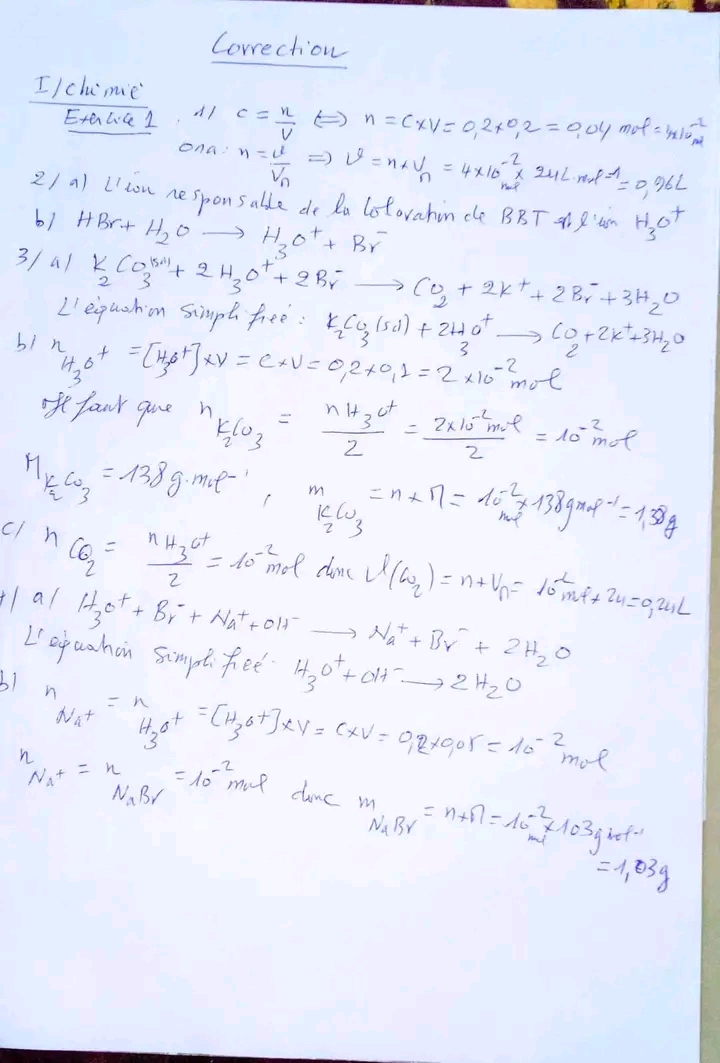 Correction
I/ chimie
Exercice 1. 1/ c = n/V ⇔ n = C×V = 0,2×0,2 = 0,04 mol = 4×10⁻² mol
On a : n = v/Vn ⇒ v = n×Vn = 4×10⁻² mol × 24L.mol⁻¹ = 0,96L
2/ a) L'ion responsable de la coloration de BBT est l'ion H₃O⁺
b) HBr + H₂O → H₃O⁺ + Br⁻
3/ a) K₂CO₃(sd) + 2H₃O⁺ + 2Br⁻ → CO₂ + 2K⁺ + 2Br⁻ + 3H₂O
L'équation simplifiée : K₂CO₃(sd) + 2H₃O⁺ → CO₂ + 2K⁺ + 3H₂O
b) n H₃O⁺ = [H₃O⁺]×V = C×V = 0,2×0,1 = 2×10⁻² mol
Il faut que n K₂CO₃ = n H₃O⁺/2 = 2×10⁻² mol/2 = 10⁻² mol
M K₂CO₃ = 138 g.mol⁻¹, m K₂CO₃ = n×M = 10⁻² mol × 138 g mol⁻¹ = 1,38g
c/ n CO₂ = n H₃O⁺/2 = 10⁻² mol donc V(CO₂) = n×Vn = 10⁻² mol × 24 = 0,24L
/ a/ H₃O⁺ + Br⁻ + Na⁺ + OH⁻ → Na⁺ + Br⁻ + 2H₂O
L'équation simplifiée : H₃O⁺ + OH⁻ → 2H₂O
b) n Na⁺ = n H₃O⁺ = [H₃O⁺]×V = C×V = 0,2×0,05 = 10⁻² mol
n Na⁺ = n NaBr = 10⁻² mol donc m NaBr = n×M = 10⁻² mol × 103 g mol⁻¹
= 1,03g